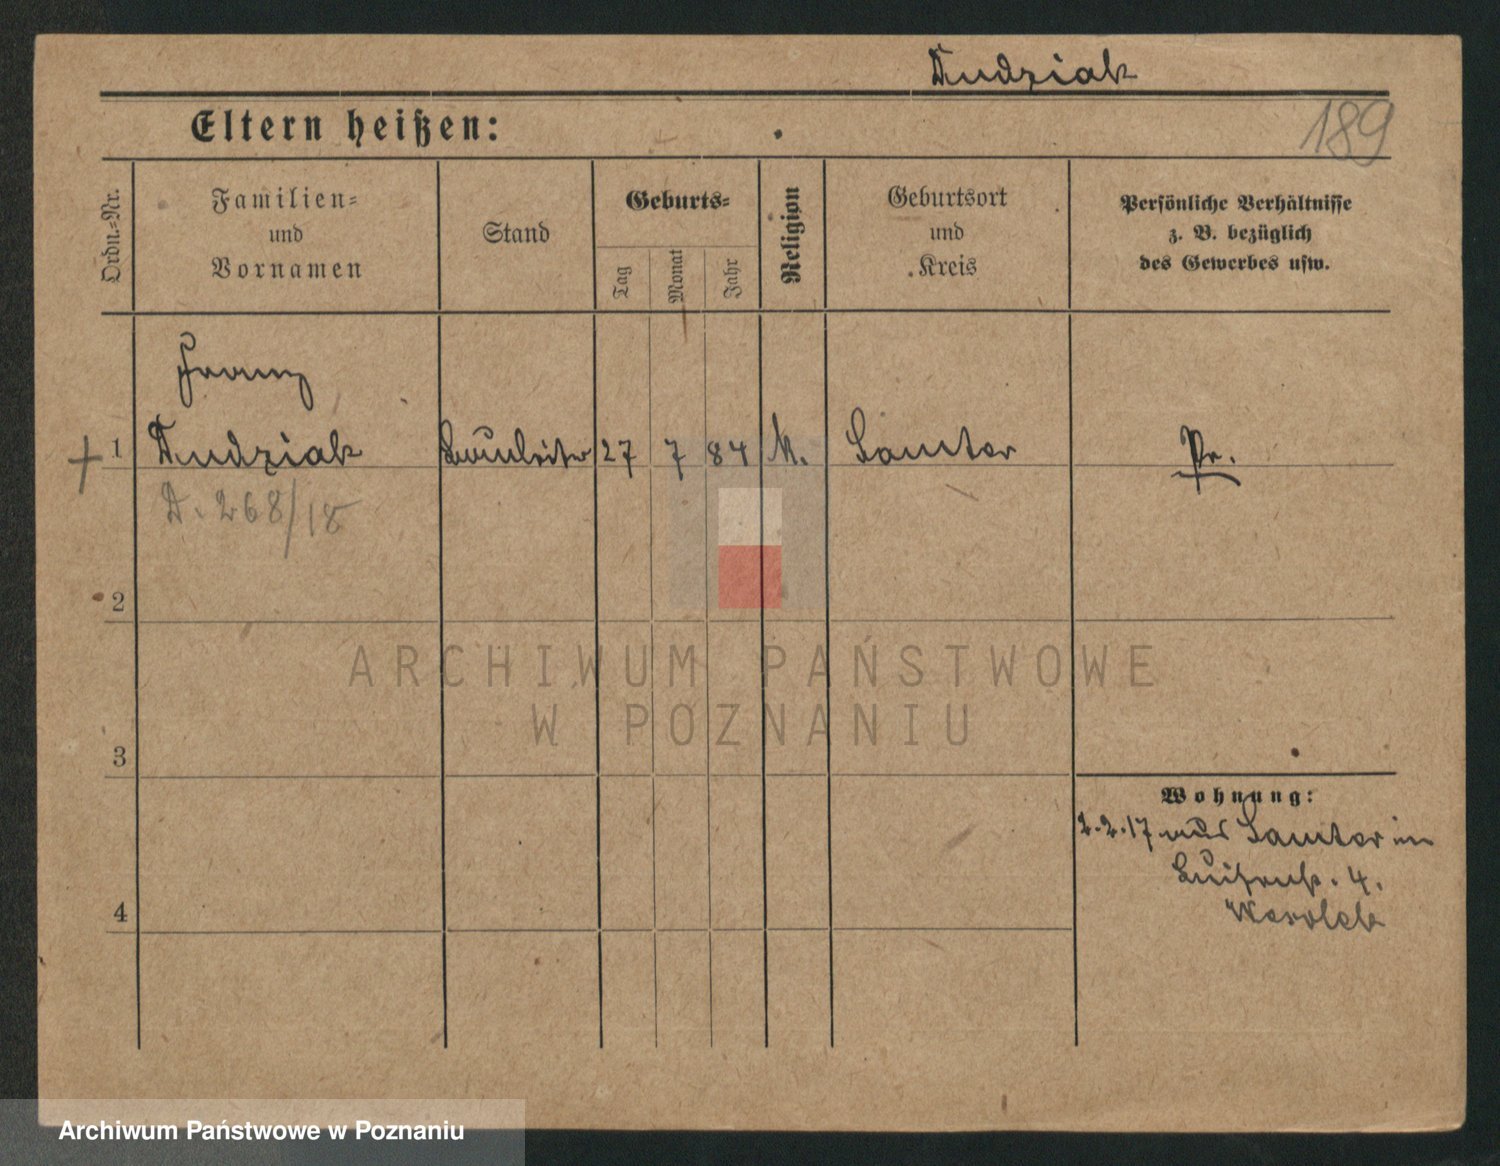 Dudziak
189
Eltern heißen:
Ordn.-Nr.
Familien=
und
Vornamen
Stand
Geburts=
Tag
Monat
Jahr
Religion
Geburtsort
und
Kreis
Persönliche Verhältnisse
z. B. bezüglich
des Gewerbes usw.
Franz
1 Dudziak Bauleiter 27 7 84 k. Samter Pr.
D. 268/18
2
3
4
Wohnung:
2.2.17 aus Samter in
Luisenst. 4.
ARCHIWUM PAŃSTWOWE
W POZNANIU
Archiwum Państwowe w Poznaniu